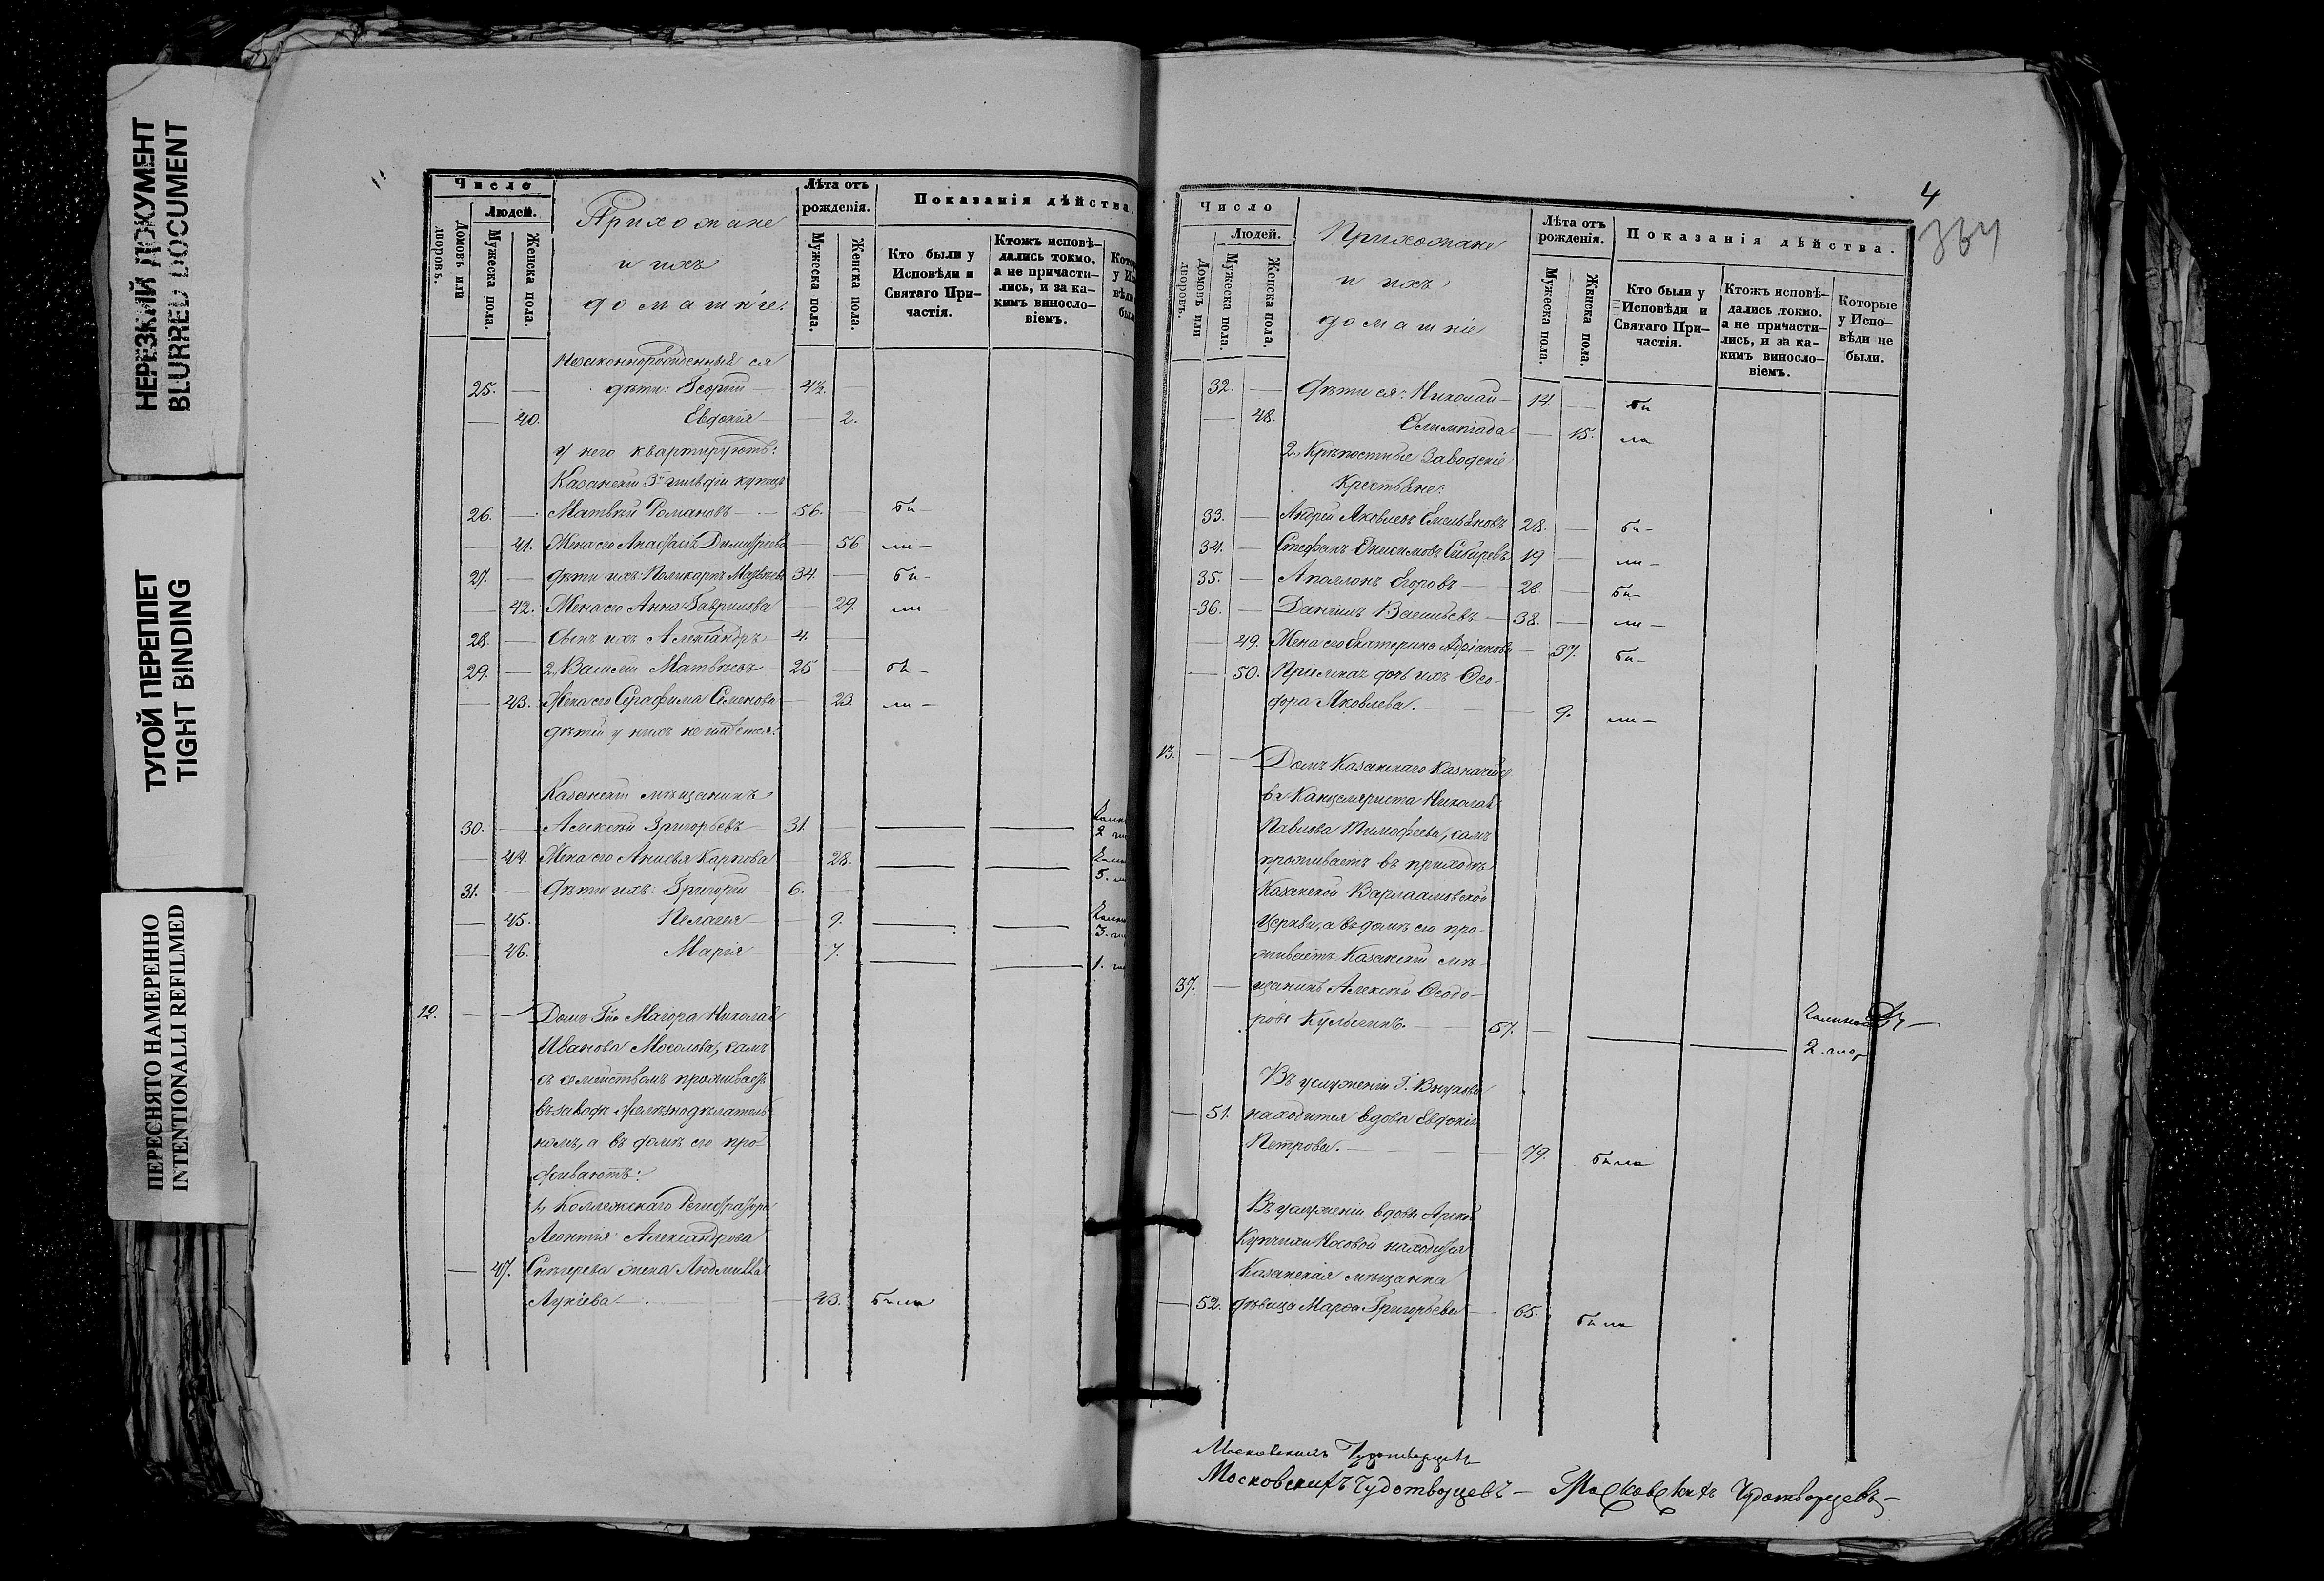 НЕРЕЗКИЙ ДОКУМЕНТ
BLURRED DOCUMENT
ТУГОЙ ПЕРЕПЛЕТ
TIGHT BINDING
ПЕРЕСНЯТО НАМЕРЕННО
INTENTIONALLI REFILMED
Число
Людей.
Домовъ или дворовъ.
Мужеска пола.
Женска пола.
Прихожане
и ихъ
домашніе.
Лѣта отъ рожденія.
Мужеска пола.
Женска пола.
Показанія дѣйства.
Кто были у Исповѣди и Святаго Причастія.
Ктожъ исповѣдались токмо, а не причастились, и за какимъ винословіемъ.
Незаконнорожденныя ея
25. — дѣти: Георгій — 4½.
— 40. Евдокія — 2.
У него квартируютъ:
Казанскій 3й гильдіи купецъ
26. — Матвѣй Романовъ — 56. — бы—
— 41. Жена его Анастасія Димитріева — 56. ли—
27. — Дѣти ихъ: Поликарпъ Матвѣевъ 34. — бы—
— 42. Жена его Анна Гаврилова — 29. ли
28. — Сынъ ихъ Александръ — 4. —
29. — 2, Василій Матвѣевъ — 25 — бы—
— 43. Жена его Серафима Семенова — 23. ли—
дѣтей у нихъ не имѣется.
Казанскій мѣщанинъ
30. — Алексѣй Григорьевъ — 31. —
— 44. Жена его Анисья Карпова — 28.
31. — Дѣти ихъ: Григорій — 6. —
— 45. Пелагея — 9.
— 46. Марія — 7.
12. — — Домъ Гна Маіора Николая
Иванова Мосолова, самъ
съ семействомъ проживаетъ
въ заводѣ желѣзнодѣлатель
номъ, а въ домѣ его про-
живаютъ:
1, Коллежскаго Регистратора
Леонтія Александрова
— 47. Снѣгерева жена Людмилла
Лукіева — 43. была
4
364
Число
Людей.
Домовъ или дворовъ.
Мужеска пола.
Женска пола.
Прихожане
и ихъ
домашніе
Лѣта отъ рожденія.
Мужеска пола.
Женска пола.
Показанія дѣйства.
Кто были у Исповѣди и Святаго Причастія.
Ктожъ исповѣдались токмо. а не причастились, и за какимъ винословіемъ.
Которые у Исповѣди не были.
32. — Дѣти ея: Николай — 14. — бы
— 48. Олимпіада — 15. ли
2, Крѣпостные Заводскіе
Крестьяне:
33. — Андрей Яковлевъ Емельяновъ 28. — бы—
34. — Стефанъ Онисимовъ Сибиревъ 19 — ли—
35. — Аполлонъ Егоровъ — 28. — бы—
36. — Даніилъ Васильевъ — 38. — ли—
— 49. Жена его Екатерина Адріанова — 37. бы—
— 50. Пріемная дочь ихъ Ѳео-
дора Яковлева. — 9. ли—
13. — — Домъ Казанскаго Казначейст
ва Канцеляриста Николая
Павлова Тимофеева, самъ
проживаетъ въ приходѣ
Казанской Варлаамовской
Церкви, а въ домѣ его про-
живаетъ Казанскій мѣ-
37. — щанинъ Алексѣй Ѳеодо-
ровъ Кульгинъ. — 67. —
Въ услуженіи Г. Внукова
— 51. находится вдова Евдокія
Петрова. — 79. была
Въ услуженіи вдовы Арской
Купчихи Носовой находится
Казанская мѣщанка
— 52. дѣвица Марѳа Григорьева — 65. была
Московскихъ Чудотворцевъ
Московскихъ Чудотворцевъ — Московскихъ Чудотворцевъ —